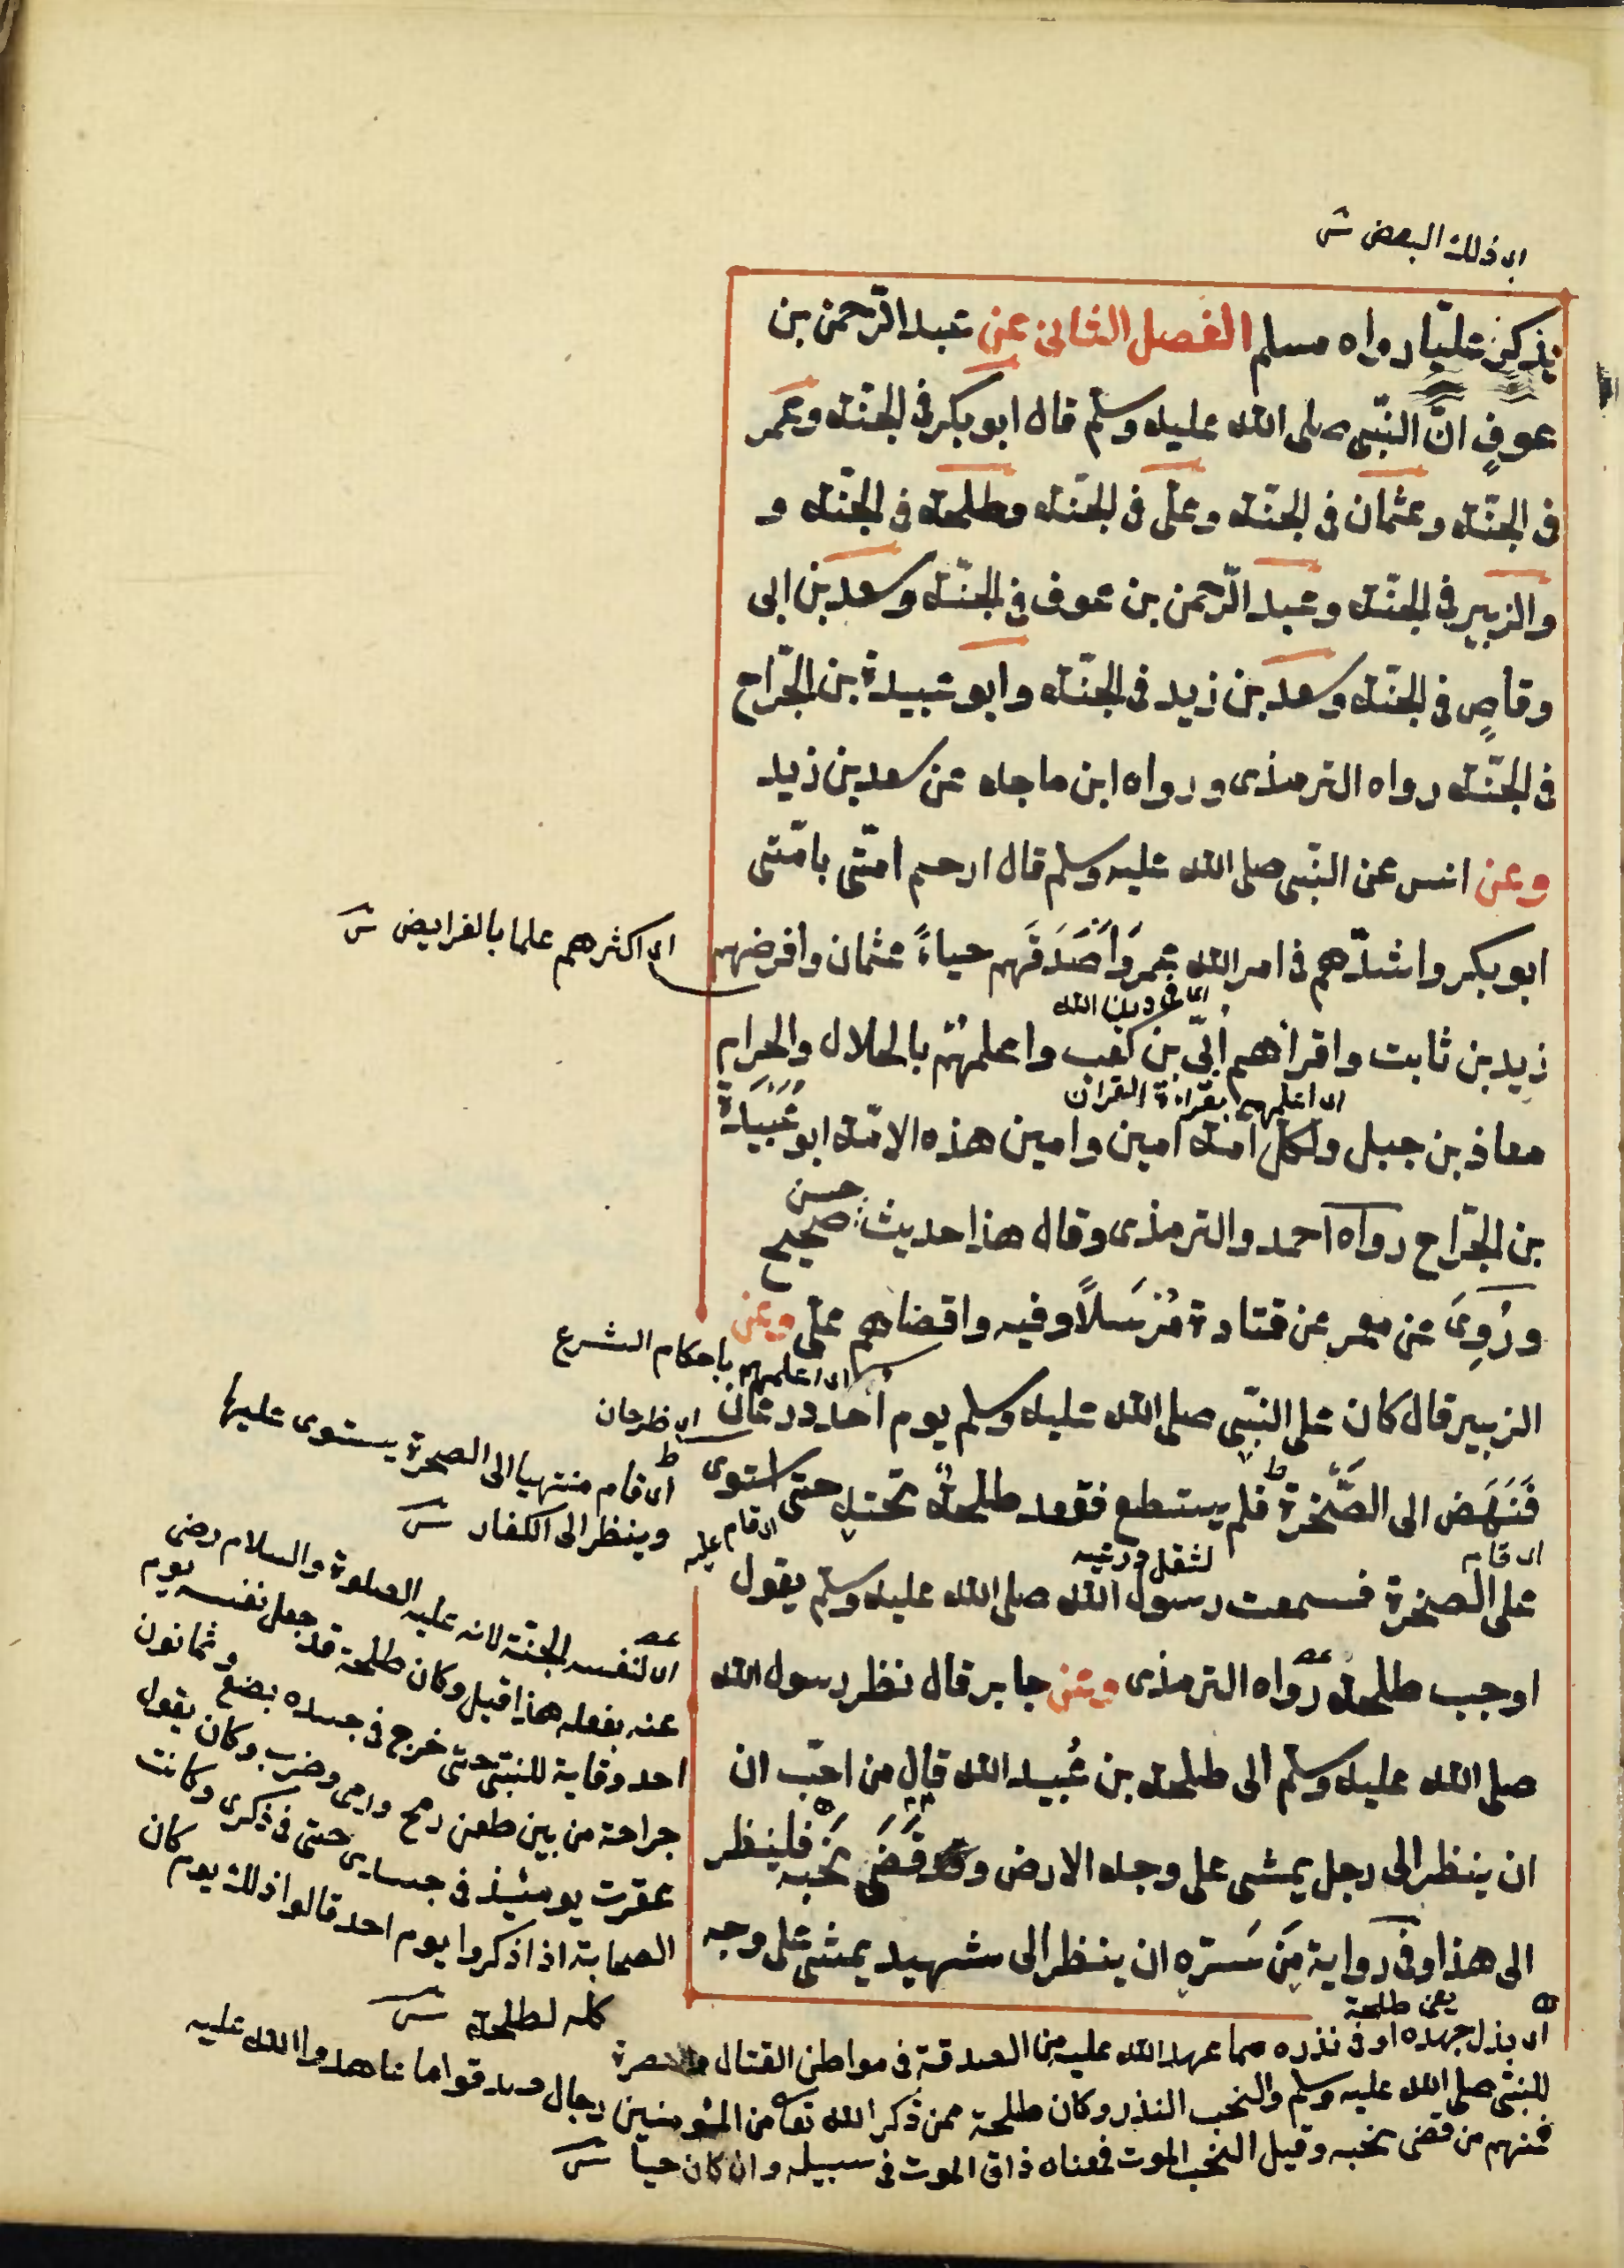 اى ذلك البعض ش
يذكر عليّا رواه مسلم الفصل الثانى عن عبد الرّحمن بن
عوفٍ انّ النّبى صلى الله عليه وسلّم قال ابو بكر فى الجنّة وعمر
فى الجنّة وعثمان فى الجنّة وعلى فى الجنّة وطلحة فى الجنّة و
والزبير فى الجنّة وعبد الرّحمن بن عوف فى الجنّة وسعد بن ابى
وقاصٍ فى الجنّة وسعد بن زيد فى الجنّة وابو عبيدة بن الجرّاح
فى الجنّة رواه الترمذى ورواه ابن ماجه عن سعد بن زيد
وعن انس عن النّبى صلى الله عليه وسلم قال ارحم امّتى بامّتى
ابو بكر واشدّهم فى امر الله عمر وَاَصْدَقَهم حياءً عثمان وافرضهم
اى اكثرهم علما بالفرايض ش
اى فى دين الله
زيد بن ثابت واقرأهم اُبىّ بن كعب واعلمهُم بالحلال والحرام
اى اعلمهم بقراءة القران
معاذ بن جبل ولكل امّة امين وامين هذه الامّة ابو عُبَيْدَة
بن الجرّاح رواه احمد والترمذى وقال هذا حديث حسن صحيح
ورُوِىَ عن معمر عن قتادة مُرْسَلاً وفيه واقضاهم على وعن
اى اعلمهم باحكام الشرع
الزبير قال كان على النّبى صلى الله عليه وسلم يوم اُحد درعان
فَنَهَضَ الى الصَّخْرة فلم يستطع فقعد طلحةُ تحته حتى استوى
اى قام
لثقل درعيه
اى قام عليه
على الصخرة فسمعت رسول الله صلى الله عليه وسلم يقول
اوجب طلحة رواه الترمذى وعن جابر قال نظر رسول الله
صلى الله عليه وسلّم الى طلحة بن عُبيد الله قال من احبّ ان
ان ينظر الى رجل يمشى على وجه الارض وقد قَضَى نَحْبَه فلينظر
الى هذا وفى رواية مَن سَرّه ان ينظر الى شهيد يمشى على وجه
اى قام منتهيا الى الصخرة يستوى عليها
وينظر الى الكفار ش
اى لنفسه الجنّة لانه عليه الصلوة والسلام رضى
عنه بفعله هذا قيل وكان طلحة قد جعل نفسه يوم
احد وقاية للنبّى حتى خرج فى جسده بضع وثمانون
جراحة من بين طعن رمح ورمى وضرب وكان يقول
عقرت يومئذ فى جسدى حتى فى ذكرى وكانت
الصحابة اذا ذكروا يوم احد قالوا ذلك يوم كان
كله لطلحة ش
يعنى طلحة
اى بذل جهده اوفى نذره مما عهد الله عليه من الصدقة فى مواطن القتال والنصرة
للنبّى صلى الله عليه وسلم والنحب النذر وكان طلحة ممن ذكر الله تعا من المؤمنين رجال صدقوا ما عاهدوا الله عليه
فمنهم من قضى نحبه وقيل النحب الموت فمعناه ذاق الموت فى سبيله وان كان حيا ش